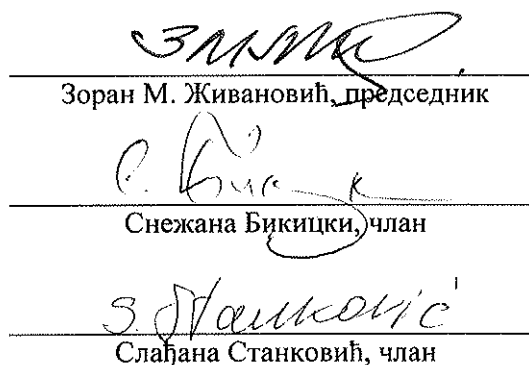 Зоран М. Живановић, председник
Снежана Бикицки, члан
S. Stanković
Слађана Станковић, члан